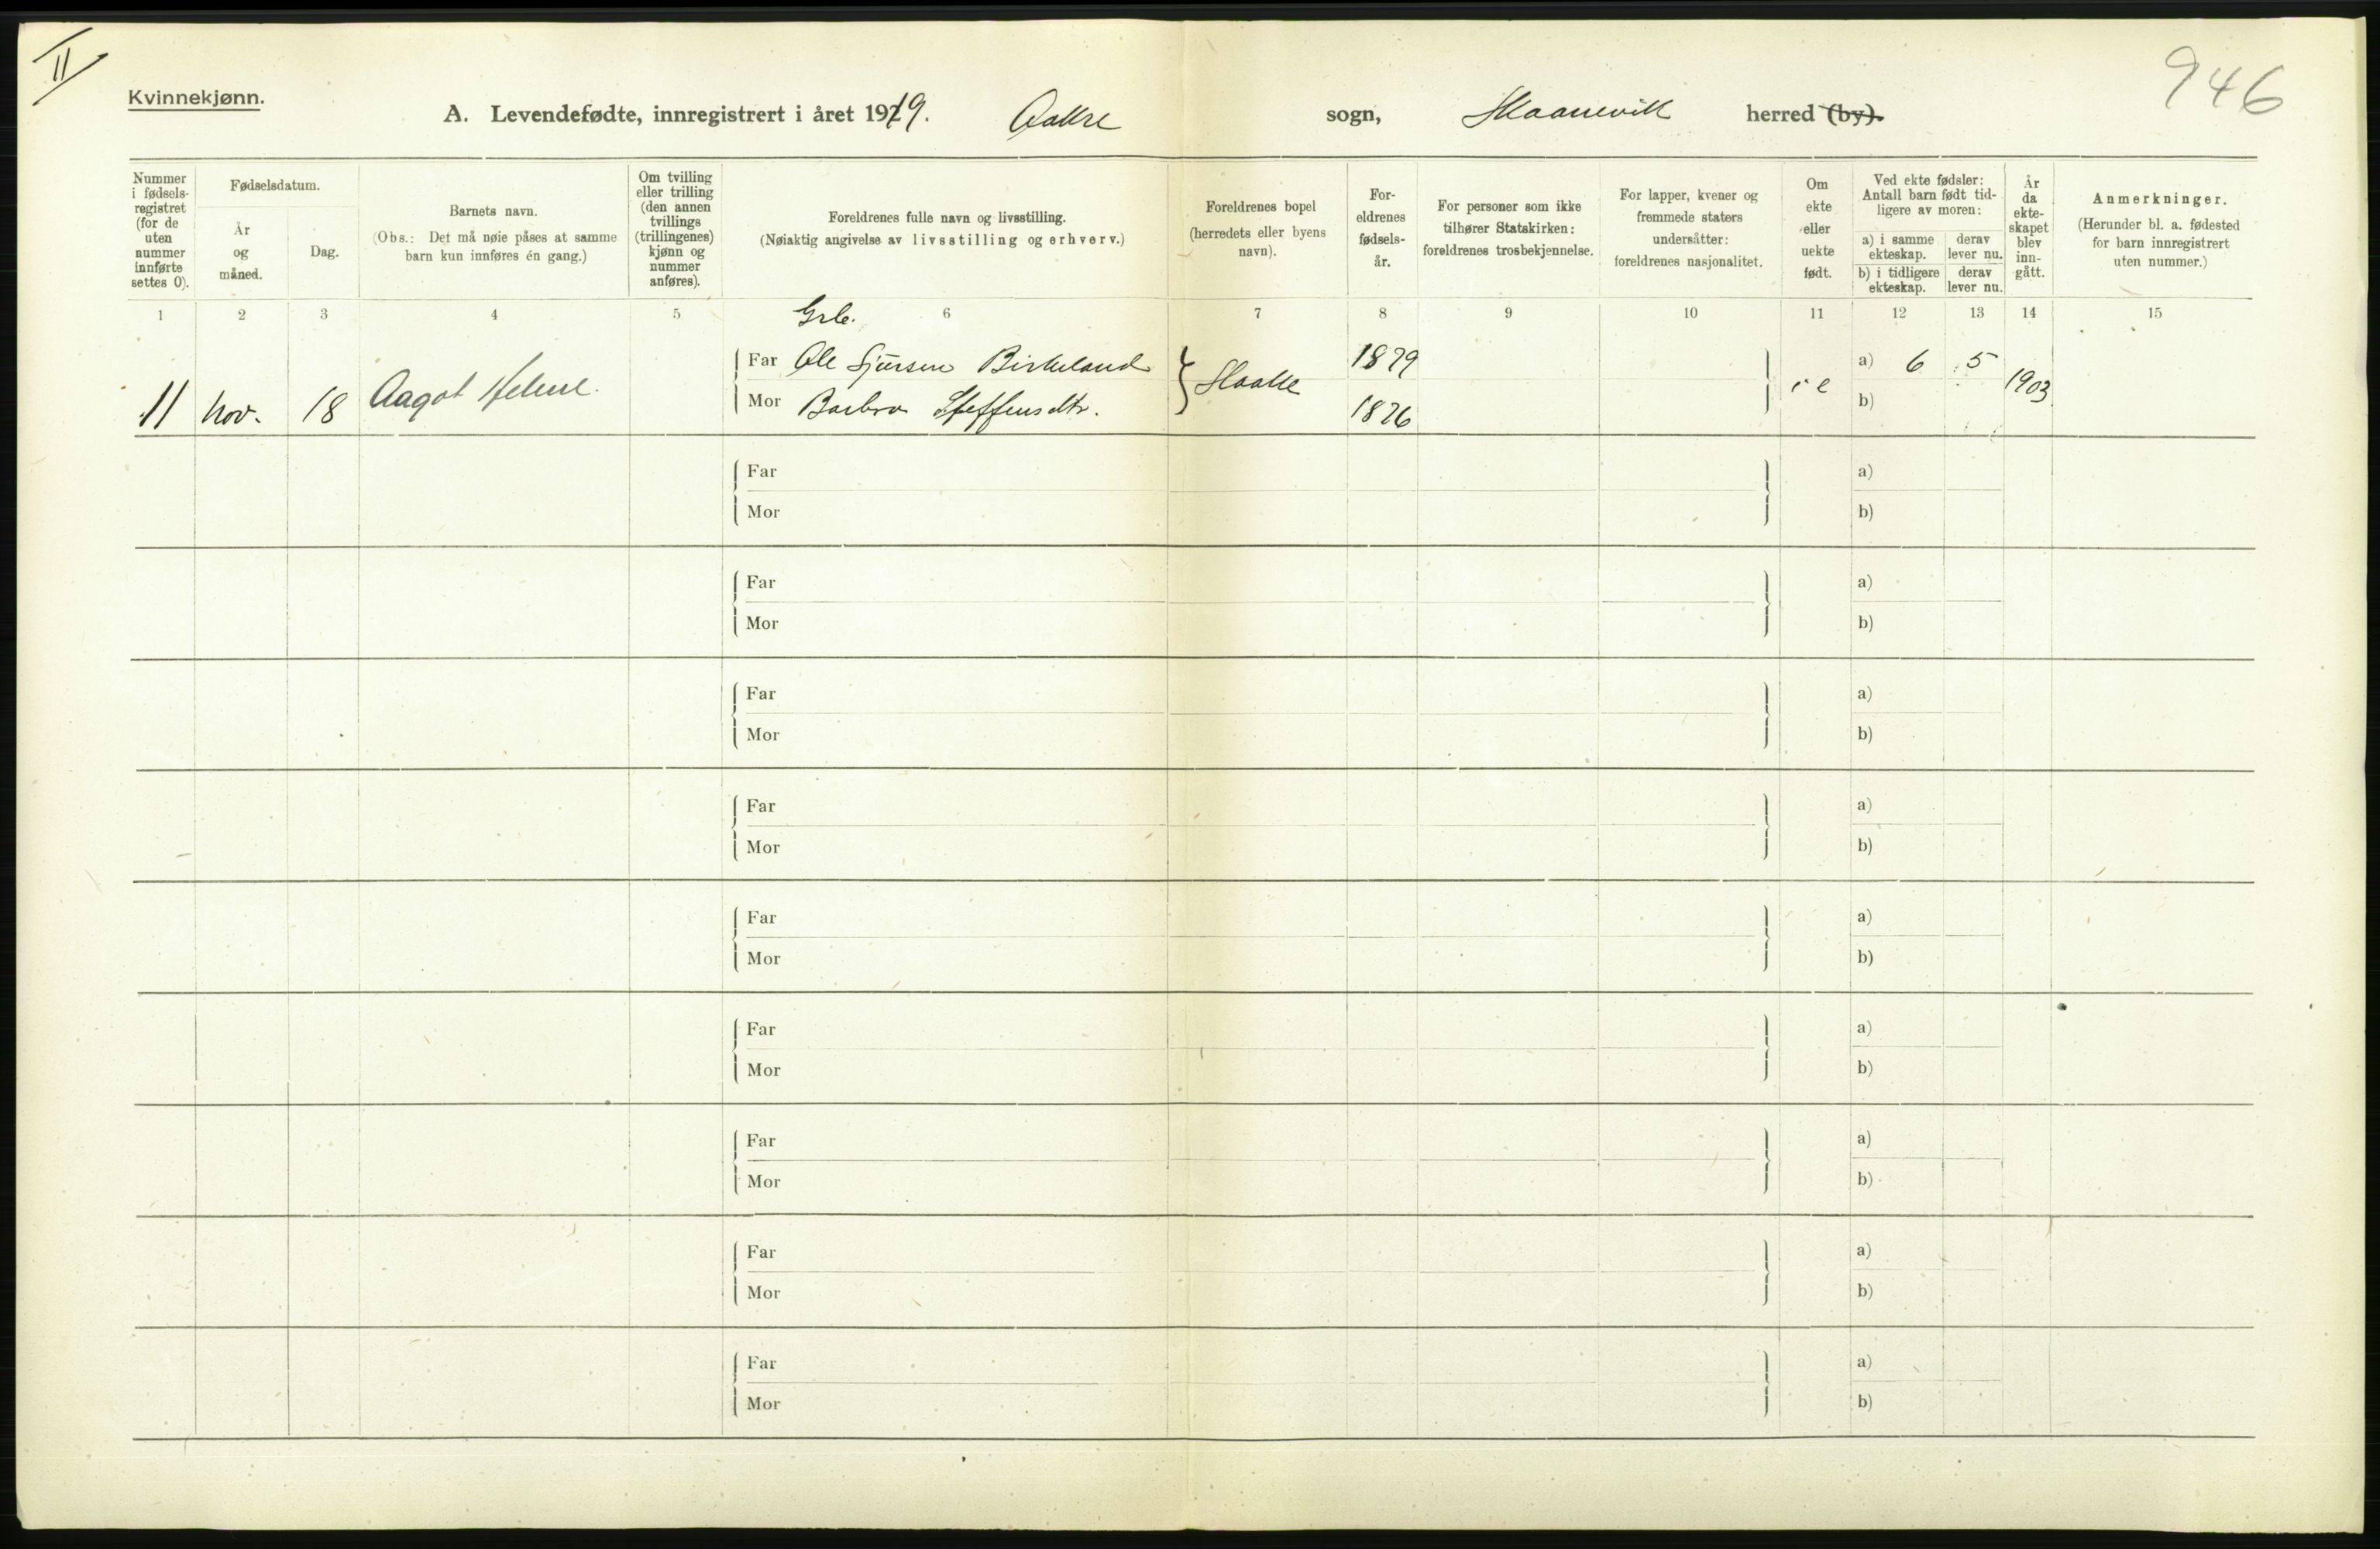 II
946
Kvinnekjønn.
A. Levendefødte, innregistrert i året 1919. Aakre sogn, Skaanevik herred (by).
Nummer i fødsels-registret (for de uten nummer innførte settes 0).
Fødselsdatum.
År og måned.
Dag.
Barnets navn.
(Obs.: Det må nøie påses at samme barn kun innføres én gang.)
Om tvilling eller trilling (den annen tvillings (trillingenes) kjønn og nummer anføres).
Foreldrenes fulle navn og livsstilling.
(Nøiaktig angivelse av livsstilling og erhverv.)
Foreldrenes bopel (herredets eller byens navn).
For-eldrenes fødsels-år.
For personer som ikke tilhører Statskirken: foreldrenes trosbekjennelse.
For lapper, kvener og fremmede staters undersåtter: foreldrenes nasjonalitet.
Om ekte eller uekte født.
Ved ekte fødsler: Antall barn født tid-ligere av moren:
a) i samme ekteskap.
derav lever nu.
b) i tidligere ekteskap.
derav lever nu.
År da ekte-skapet blev inn-gått.
Anmerkninger.
(Herunder bl. a. fødested for barn innregistrert uten nummer.)
1 2 3 4 5 6 7 8 9 10 11 12 13 14 15
Grb.
Far Ole Sjursen Birkeland 1879 a) 6 5
11 Nov. 18 Aagot Helene. Haakke 1903
Mor Barbro Steffensdtr. 1876 b)
Far a)
Mor b)
Far a)
Mor b)
Far a)
Mor b)
Far a)
Mor b)
Far a)
Mor b)
Far a)
Mor b)
Far a)
Mor b)
Far a)
Mor b)
Far a)
Mor b)